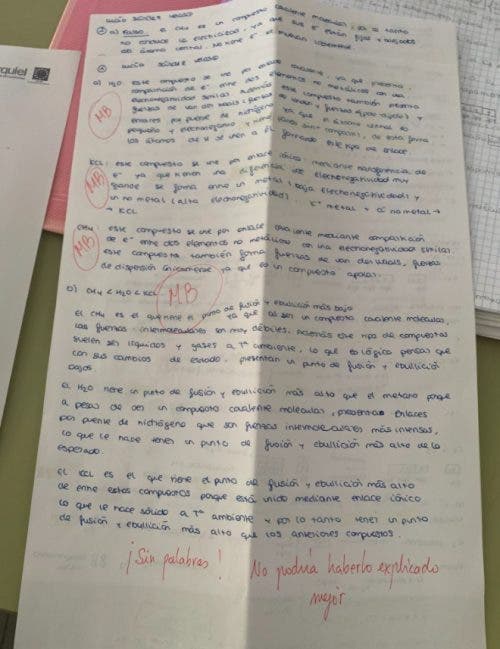 quiel
a) Falso. El CH4 es un compuesto covalente molecular, por lo tanto
no conduce la electricidad, ya que sus e- están fijos y
átomo central. No tiene e- se muevan libremente.
a) H2O: este compuesto se une por enlace covalente, ya que presenta
compartición de e- entre dos elementos no metálicos con una
electronegatividad similar. Además este compuesto también presenta
fuerzas de van der Waals, fuerzas
enlaces por puente de hidrógeno ya que el átomo central es
pequeño y electronegativo y tiene, de esta forma
los átomos de H se unen a él formando este tipo de enlace.
MB
KCL: este compuesto se une por enlace iónico mediante transferencia de
e- ya que tienen una diferencia de electronegatividad muy
grande se forma entre un metal (baja electronegatividad) y
un no metal (alta electronegatividad)
→ KCL
MB
CH4: este compuesto se une por enlace covalente mediante compartición
de e- entre dos elementos no metálicos con una electronegatividad similar.
Este compuesto también forma fuerzas de van der Waals, fuerzas
de dispersión únicamente ya que es un compuesto apolar.
MB
b) CH4 < H2O < KCL
MB
El CH4 es el que tiene el punto de fusión y ebullición más bajo
ya que al ser un compuesto covalente molecular,
las fuerzas intermoleculares son muy débiles. Además este tipo de compuestos
suelen ser líquidos y gases a Tª ambiente, lo que es lógico pensar que
con sus cambios de estado, presentan un punto de fusión y ebullición
bajos
El H2O tiene un punto de fusión y ebullición más alto que el metano porque
a pesar de ser un compuesto covalente molecular, presenta enlaces
por puente de hidrógeno que son fuerzas intermoleculares más intensas,
lo que le hace tener un punto de fusión y ebullición más alto de lo
esperado.
El KCL es el que tiene el punto de fusión y ebullición más alto
de entre estos compuestos porque está unido mediante enlace iónico
lo que le hace sólido a Tª ambiente y por lo tanto tener un punto
de fusión y ebullición más alto que los anteriores compuestos.
¡Sin palabras! No podría haberlo explicado
mejor